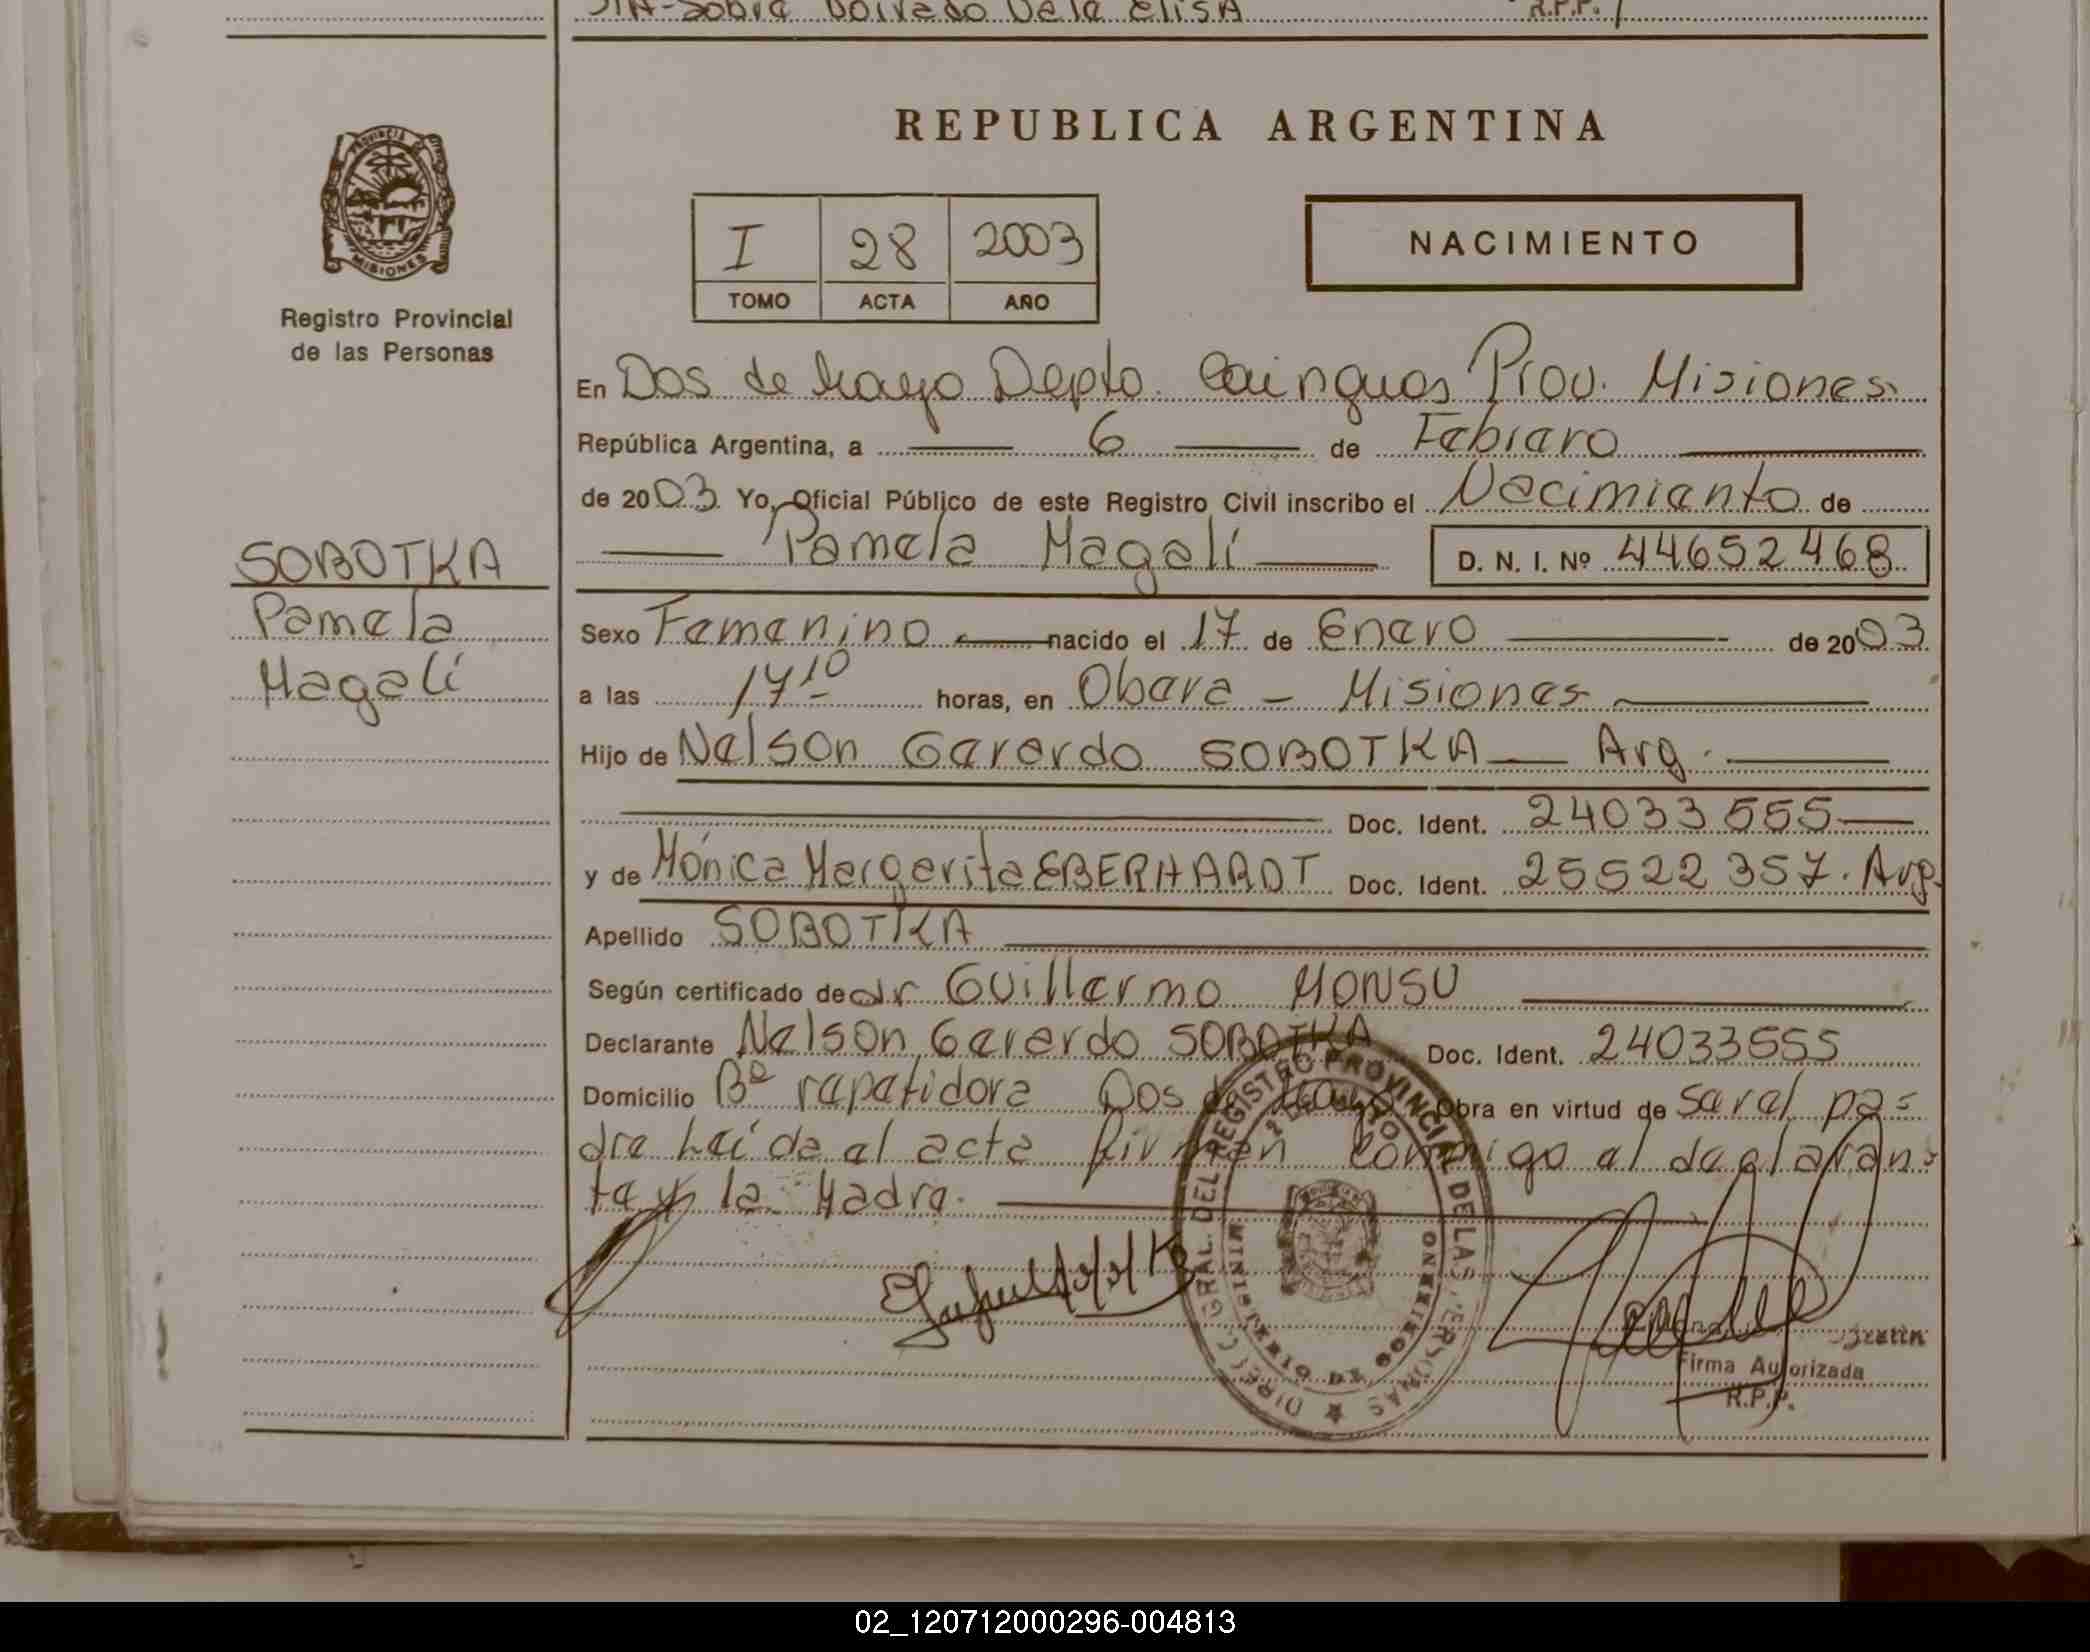 R.P.P.
REPUBLICA ARGENTINA
PROVINCIA DE
MISIONES
Registro Provincial
de las Personas
I 28 2003
TOMO ACTA AÑO
NACIMIENTO
En Dos de Mayo Depto. Cainguas Prov. Misiones
República Argentina, a 6 de Febrero
de 2003 Yo, Oficial Público de este Registro Civil inscribo el Nacimiento de
Pamela Magalí D. N. I. Nº 44652468
SOBOTKA
Pamela
Magalí
Sexo Femenino nacido el 17 de Enero de 2003
a las 17 10 horas, en Obera - Misiones
Hijo de Nelson Gerardo SOBOTKA Arg.
Doc. Ident. 24033555
y de Mónica Margarita EBERHARDT Doc. Ident. 25522357. Arg.
Apellido SOBOTKA
Según certificado de dr Guillermo MONSU
Declarante Nelson Gerardo SOBOTKA Doc. Ident. 24033555
Domicilio Bº repetidora Dos de Mayo Obra en virtud de ser el pa=
dre Leída el acta firman conmigo el declaran=
te y la Madre.
DIRECC. GRAL. DEL REGISTRO PROVINCIAL DE LAS PERSONAS
MINISTERIO DE GOBIERNO
Firma Autorizada
R.P.P.
02_120712000296-004813